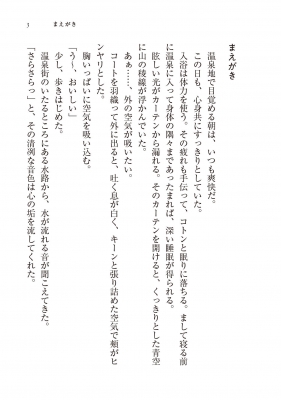 5　まえがき
まえがき
温泉地で目覚める朝は、いつも爽快だ。
この日も、心身共にすっきりとしていた。
入浴は体力を使う。その疲れも手伝って、コトンと眠りに落ちる。まして寝る前
に温泉に入って身体の隅々まであったまれば、深い睡眠が得られる。
眩しい光がカーテンから漏れる。そのカーテンを開けると、くっきりとした青空
に山の稜線が浮かんでいた。
あぁ……、外の空気が吸いたい。
コートを羽織って外に出ると、吐く息が白く、キーンと張り詰めた空気で頬がヒ
ンヤリとした。
胸いっぱいに空気を吸い込む。
「うー、おいしい」
少し、歩きはじめた。
温泉街のいたるところにある水路から、水が流れる音が聞こえてきた。
「さらさらっ」と、その清冽な音色は心の垢を流してくれた。